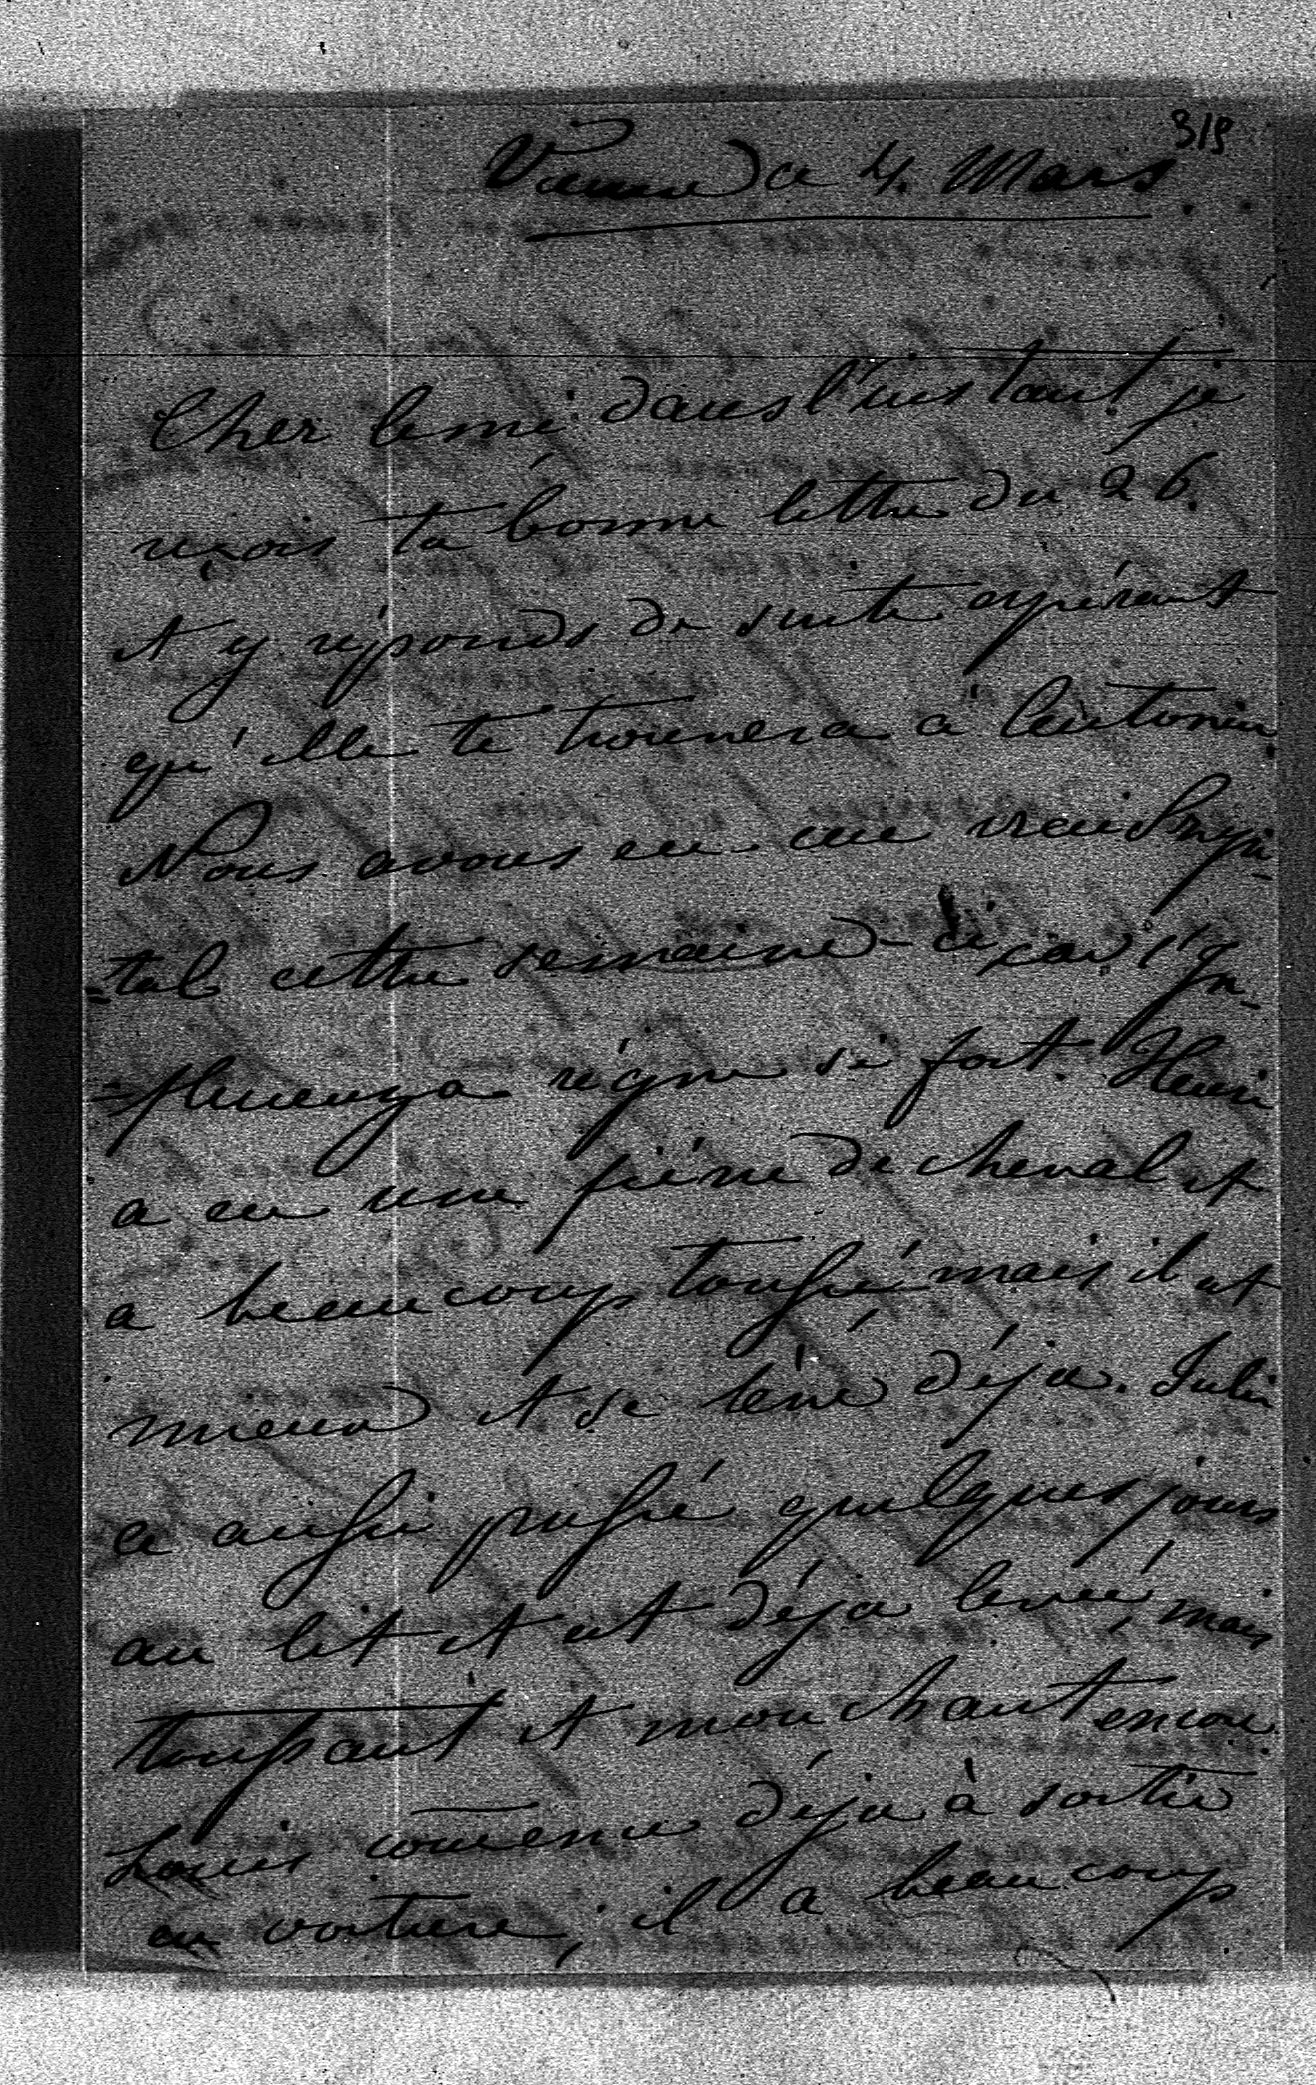 318
Vienne ce 4. Mars
Cher Ami! dans l'instant je
reçois ta bonne lettre du 26.
et y réponds de suite espérant
qu'elle te trouvera à Antonin.
Nous avons eu un vrai hopi-
-tal cette semaine-ci, car l'in-
-fluenza règne si fort. Henri
a eu une fièvre de cheval et
a beaucoup toussé mais il est
mieux et se lève déjà. Julie
a aussi passé quelques jours
au lit et est déjà levée, mais
toussant et mouchant encore.
Louis comence déjà à sortir
en voiture; il a beaucoup